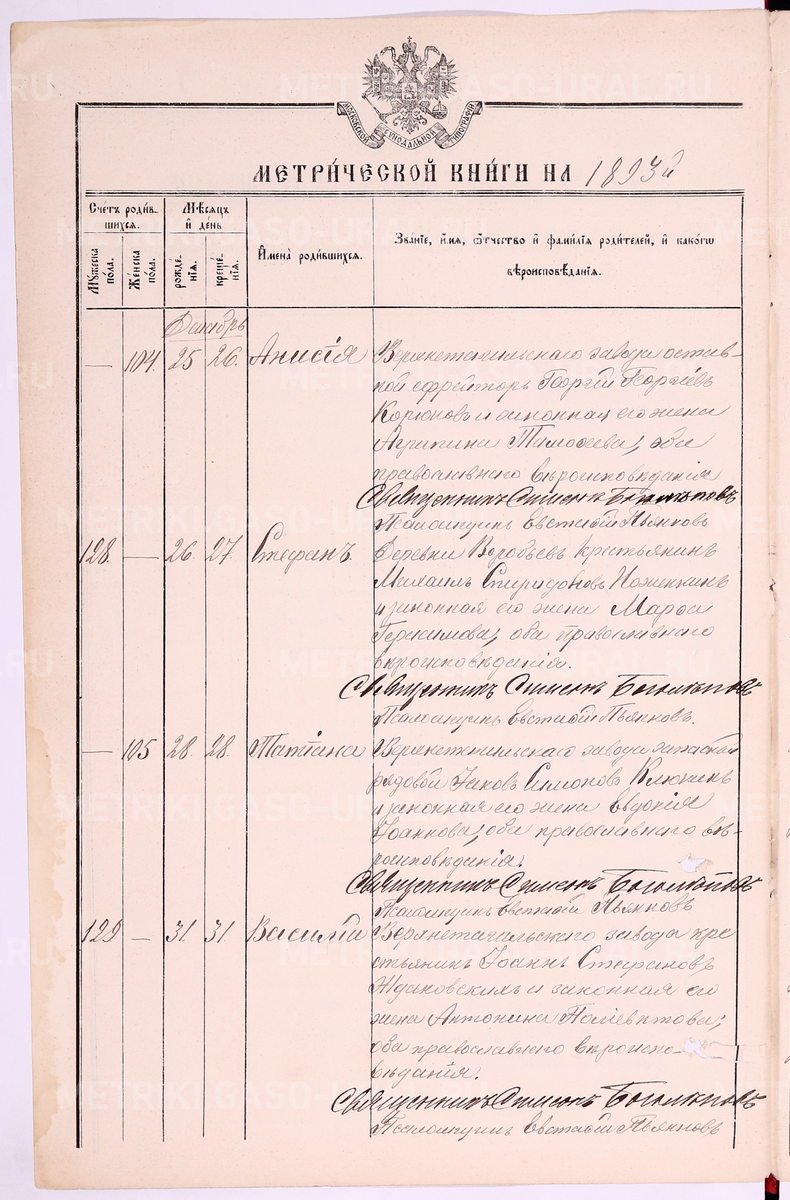 МОСКОВСКОЙ СѴНОДАЛЬНОЙ ТИПОГРАФІИ
МЕТРИ́ЧЕСКОЙ КНИ́ГИ НА 1893й
Сче́тъ роди́в-
шихся.
Мѣ́сяцъ
и҆ день
Мꙋ́жеска по́ла.
Же́нска по́ла.
рожде́-
нїѧ.
креще́-
нїѧ.
И҆мена̀ роди́вшихся.
Зва́нїе, и҆́мѧ, ѻ҆́тчество и҆ фами́лїѧ роди́телей, и҆ како́гѡ
вѣроисповѣ́данїѧ.
Декабрь
— 104. 25 26. Анисія Верхнетагильскаго завода остав-
ной ефрейторъ Георгій Георгіевъ
Корюковъ и законная его жена
Агрипина Тимоѳеева; оба
православнаго вѣроисповѣданія
Священникъ Симеонъ Боголѣповъ
Псаломщикъ Евстаѳій Пьянковъ
128. — 26. 27. Стефанъ Деревни Воробьевъ крестьянинъ
Михаилъ Спиридоновъ
и законная его жена Марѳа
Герасимова; оба православнаго
вѣроисповѣданія.
Священникъ Симеонъ Боголѣповъ
Псаломщикъ Евстаѳій Пьянковъ.
— 105 28. 28. Татіана Верхнетагильскаго завода запасной
рядовой Іаковъ Симоновъ Клюкинъ
и законная его жена Евдокія
Іоаннова; оба православнаго вѣ-
роисповѣданія.
Священникъ Симеонъ Боголѣповъ
Псаломщикъ Евстаѳій Пьянковъ
129 — 31. 31. Василій Верхнетагильскаго завода кре
стьянинъ Іоаннъ Стефановъ
Ждановскихъ и законная его
жена Антонина Поліевктова;
оба православнаго вѣроиспо-
вѣданія.
Священникъ Симеонъ Боголѣповъ
Псаломщикъ Евстаѳій Пьянковъ
METRIKI.GASO-URAL.RU